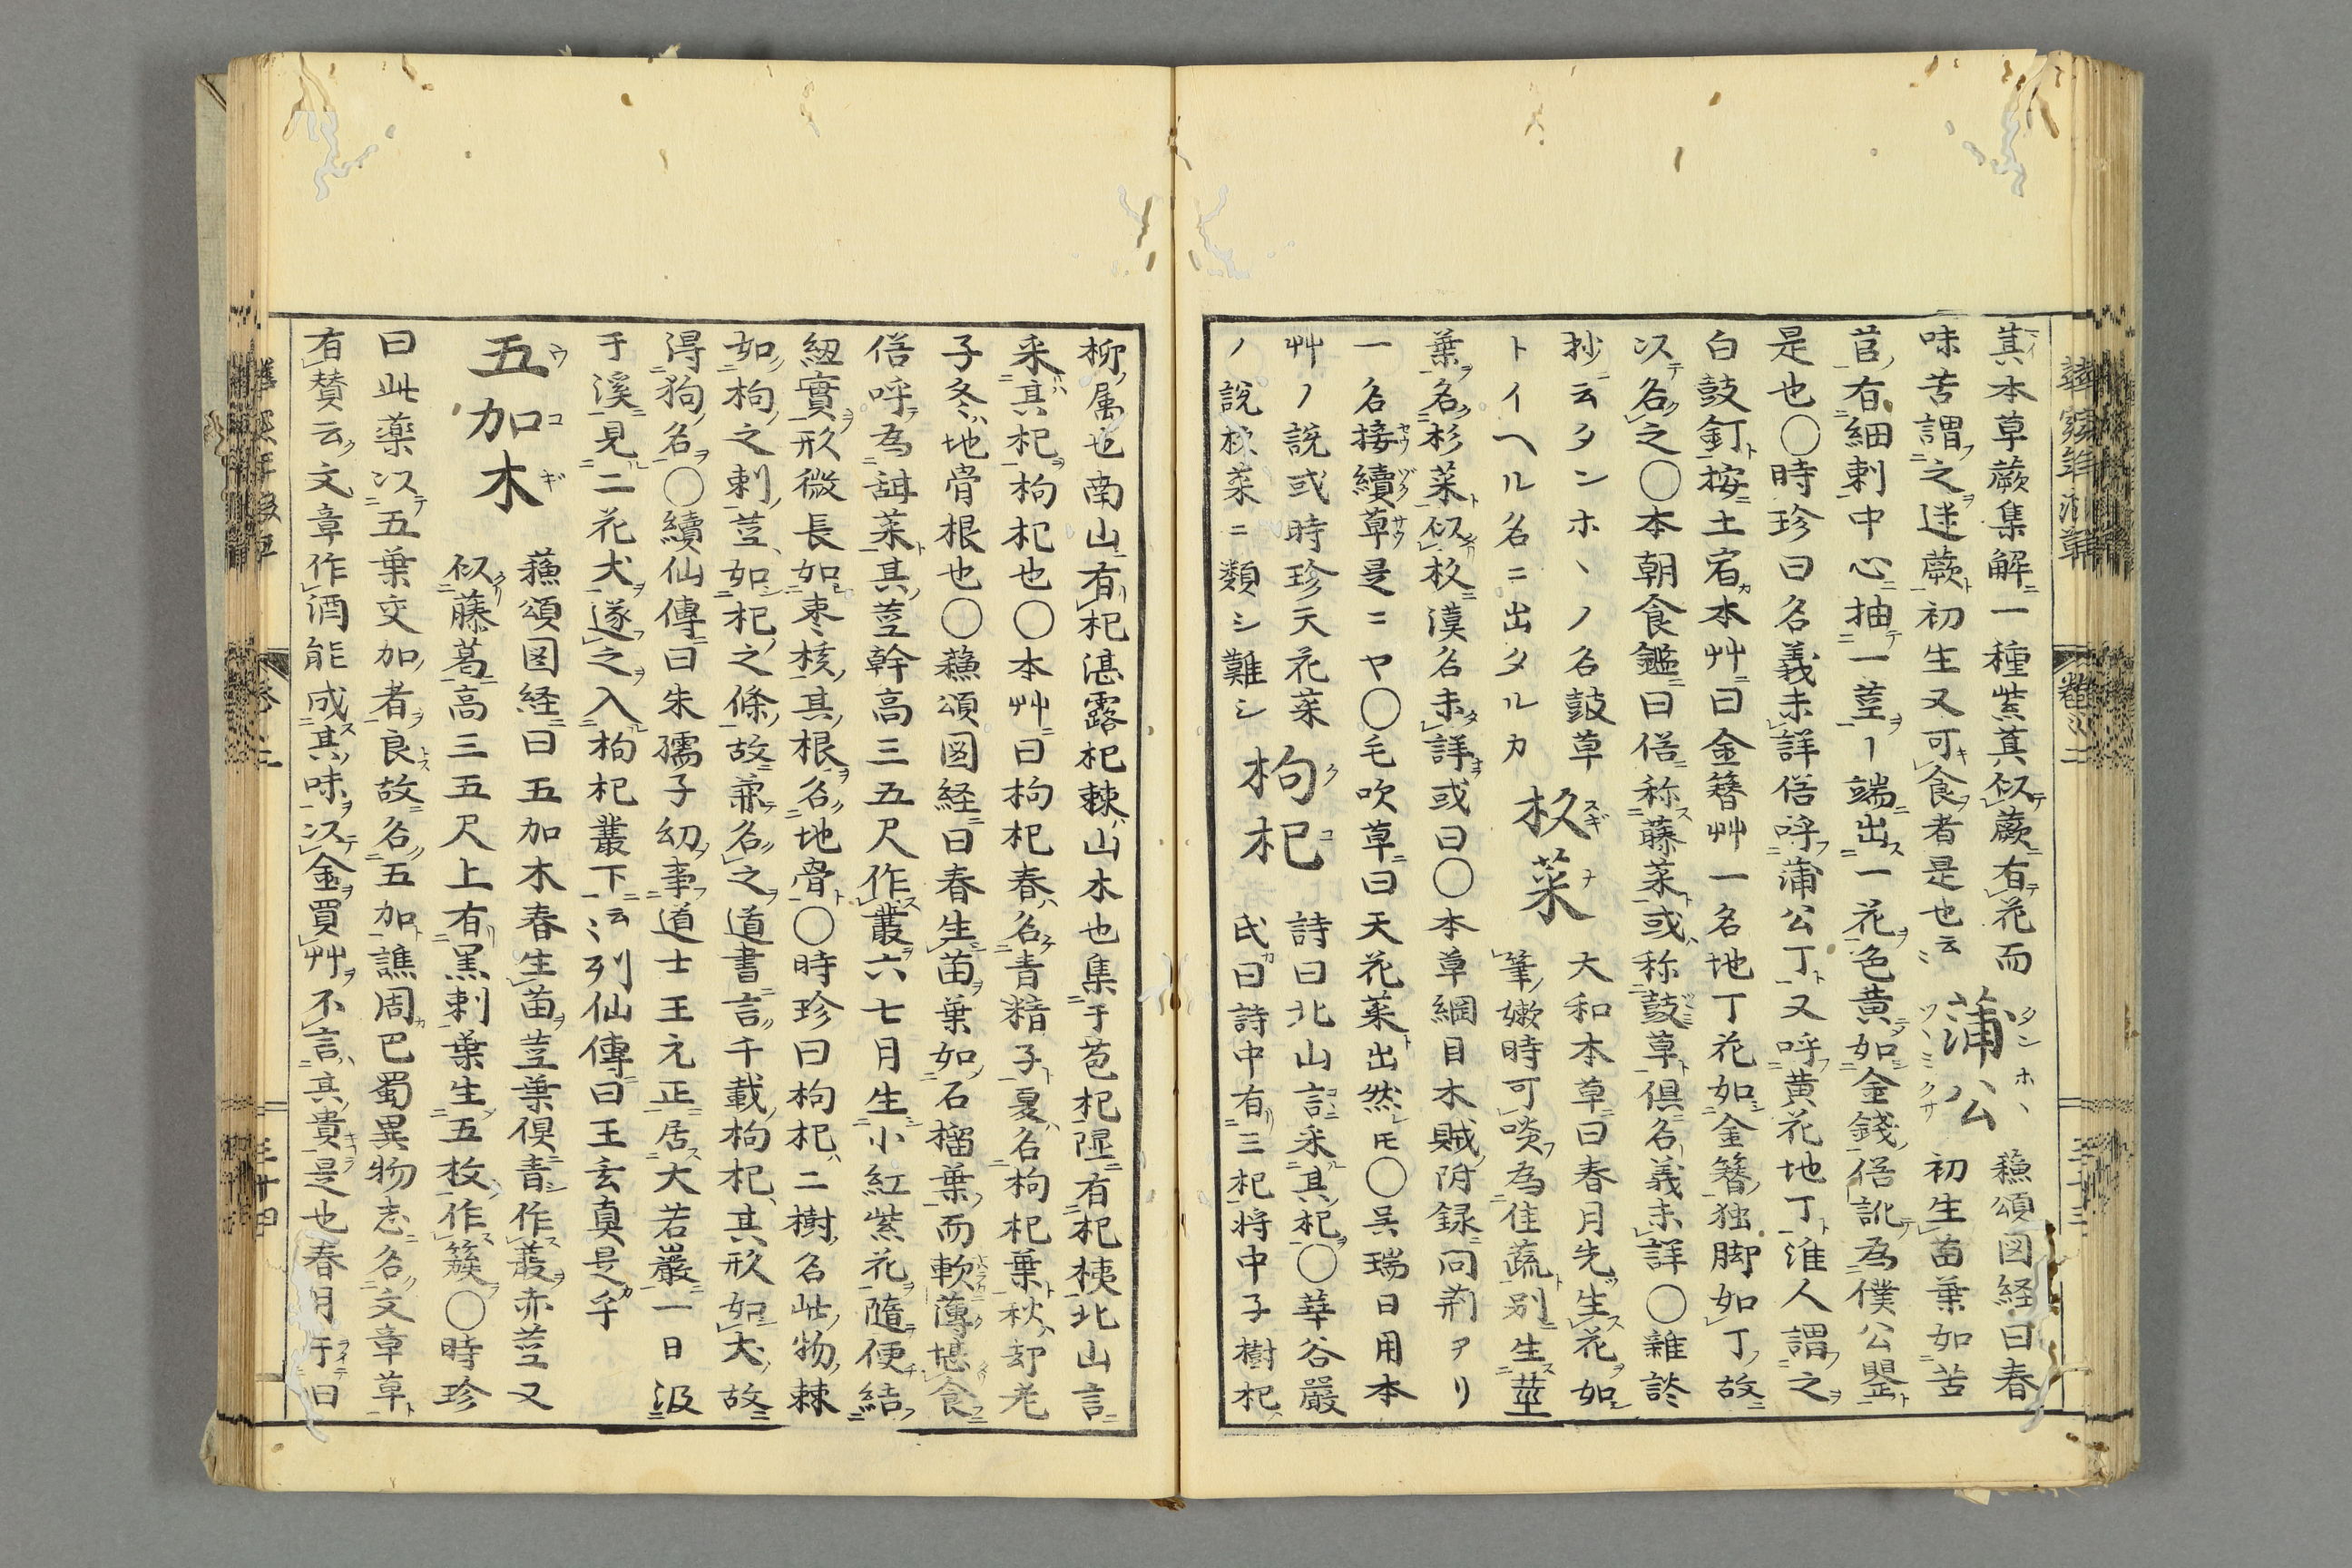 萁本草蕨集解一種紫萁似蕨有花而
味苦謂之迷蕨初生又可食者是也云〻
蒲公
タンホヽ
ツヽミクサ
蘓頌図経曰春
初生苗葉如苦
苣有細刺中心抽一莖ー端出一花色黄如金錢俗訛為僕公罌
是也〇時珍曰名義未詳俗呼蒲公丁又呼黄花地丁淮人謂之
白鼓釘按土宿本艸曰金簪艸一名地丁花如金簪独脚如丁故
以名之〇本朝食鑑曰俗称藤菜或称鼓草俱名義未詳〇雜談
抄云タンホヽノ名鼓草
トイヘル名ニ出タルカ
杉菜
スギナ
大和本草曰春月先生花如
筆嫰時可啖為佳蔬别生莖
葉名杉菜似杉漢名未詳或曰〇本草綱目木賊附録問荊アリ
一名接續草是ニヤ〇毛吹草曰天花菜出然𪜈〇吴瑞日用本
艸ノ説或時珍天花菜
ノ説杉菜ニ類シ難シ
枸杞
クコ
詩曰北山言采其杞〇華谷嚴
氏曰詩中有三杞将中子樹杞
柳属也南山有杞湛露杞棘山木也集于苞杞隰有杞桋北山言
采其杞枸杞也〇本艸曰枸杞春名青精子夏名枸杞葉秋却老
子冬地骨根也〇蘓頌図経曰春生苗葉如石榴葉而軟薄堪食
俗呼為甜菜其莖幹高三五尺作叢六七月生小紅紫花隨便結
紐實形微長如枣核其根名地骨〇時珍曰枸杞二樹名此物棘
如枸之刺莖如杞之條故兼名之道書言千載枸杞其形如犬故
得狗名〇續仙傳曰朱孺子幼事道士王元正居大若巖一日汲
于溪見二花犬遂之入枸杞叢下云〻列仙傳曰王玄真是乎
五加木
ウコギ
蘓頌図経曰五加木春生苗莖葉俱青作叢赤莖又
似藤葛高三五尺上有黒刺葉生五枚作簇〇時珍
曰此藥以五葉交加者良故名五加譙周巴蜀異物志名文章草
有賛云文章作酒能成其味以金買艸不言其貴是也春月于旧